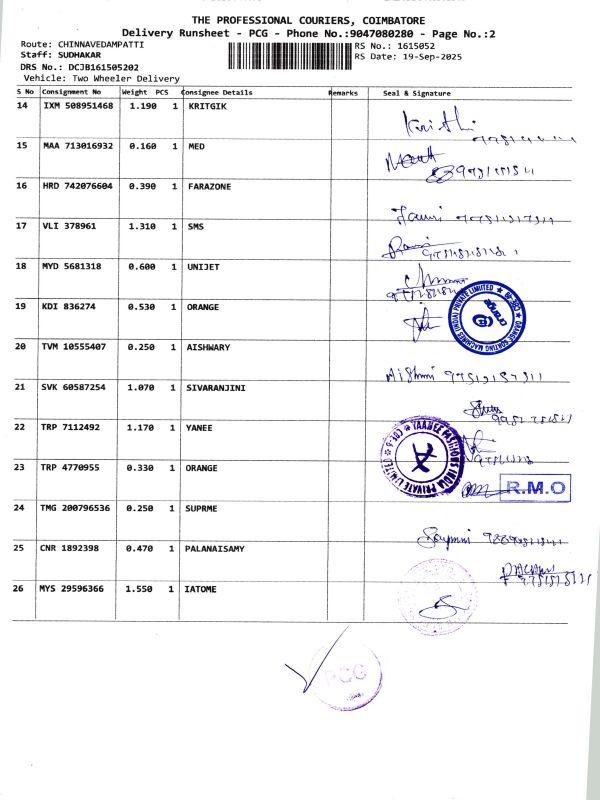 THE PROFESSIONAL COURIERS, COIMBATORE
Delivery Runsheet - PCG - Phone No.:9047080280 - Page No.:2
Route: CHINNAVEDAMPATTI RS No.: 1615052
Staff: SUDHAKAR RS Date: 19-Sep-2025
DRS No.: DCJB161505202
Vehicle: Two Wheeler Delivery
S No Consignment No Weight PCS Consignee Details Remarks Seal & Signature
14 IXM 508951468 1.190 1 KRITGIK
15 MAA 713016932 0.160 1 MED
16 HRD 742076604 0.390 1 FARAZONE
17 VLI 378961 1.310 1 SMS
18 MYD 5681318 0.600 1 UNIJET
19 KDI 836274 0.530 1 ORANGE
ORANGE COATING MACHINES (INDIA) PRIVATE LIMITED ★ CBE-49 ★
20 TVM 10555407 0.250 1 AISHWARY
21 SVK 60587254 1.070 1 SIVARANJINI
22 TRP 7112492 1.170 1 YANEE
YAANEE FASHIONS INDIA PRIVATE LIMITED
23 TRP 4770955 0.330 1 ORANGE
R.M.O
24 TMG 200796536 0.250 1 SUPRME
25 CNR 1892398 0.470 1 PALANAISAMY
26 MYS 29596366 1.550 1 IATOME
PCG